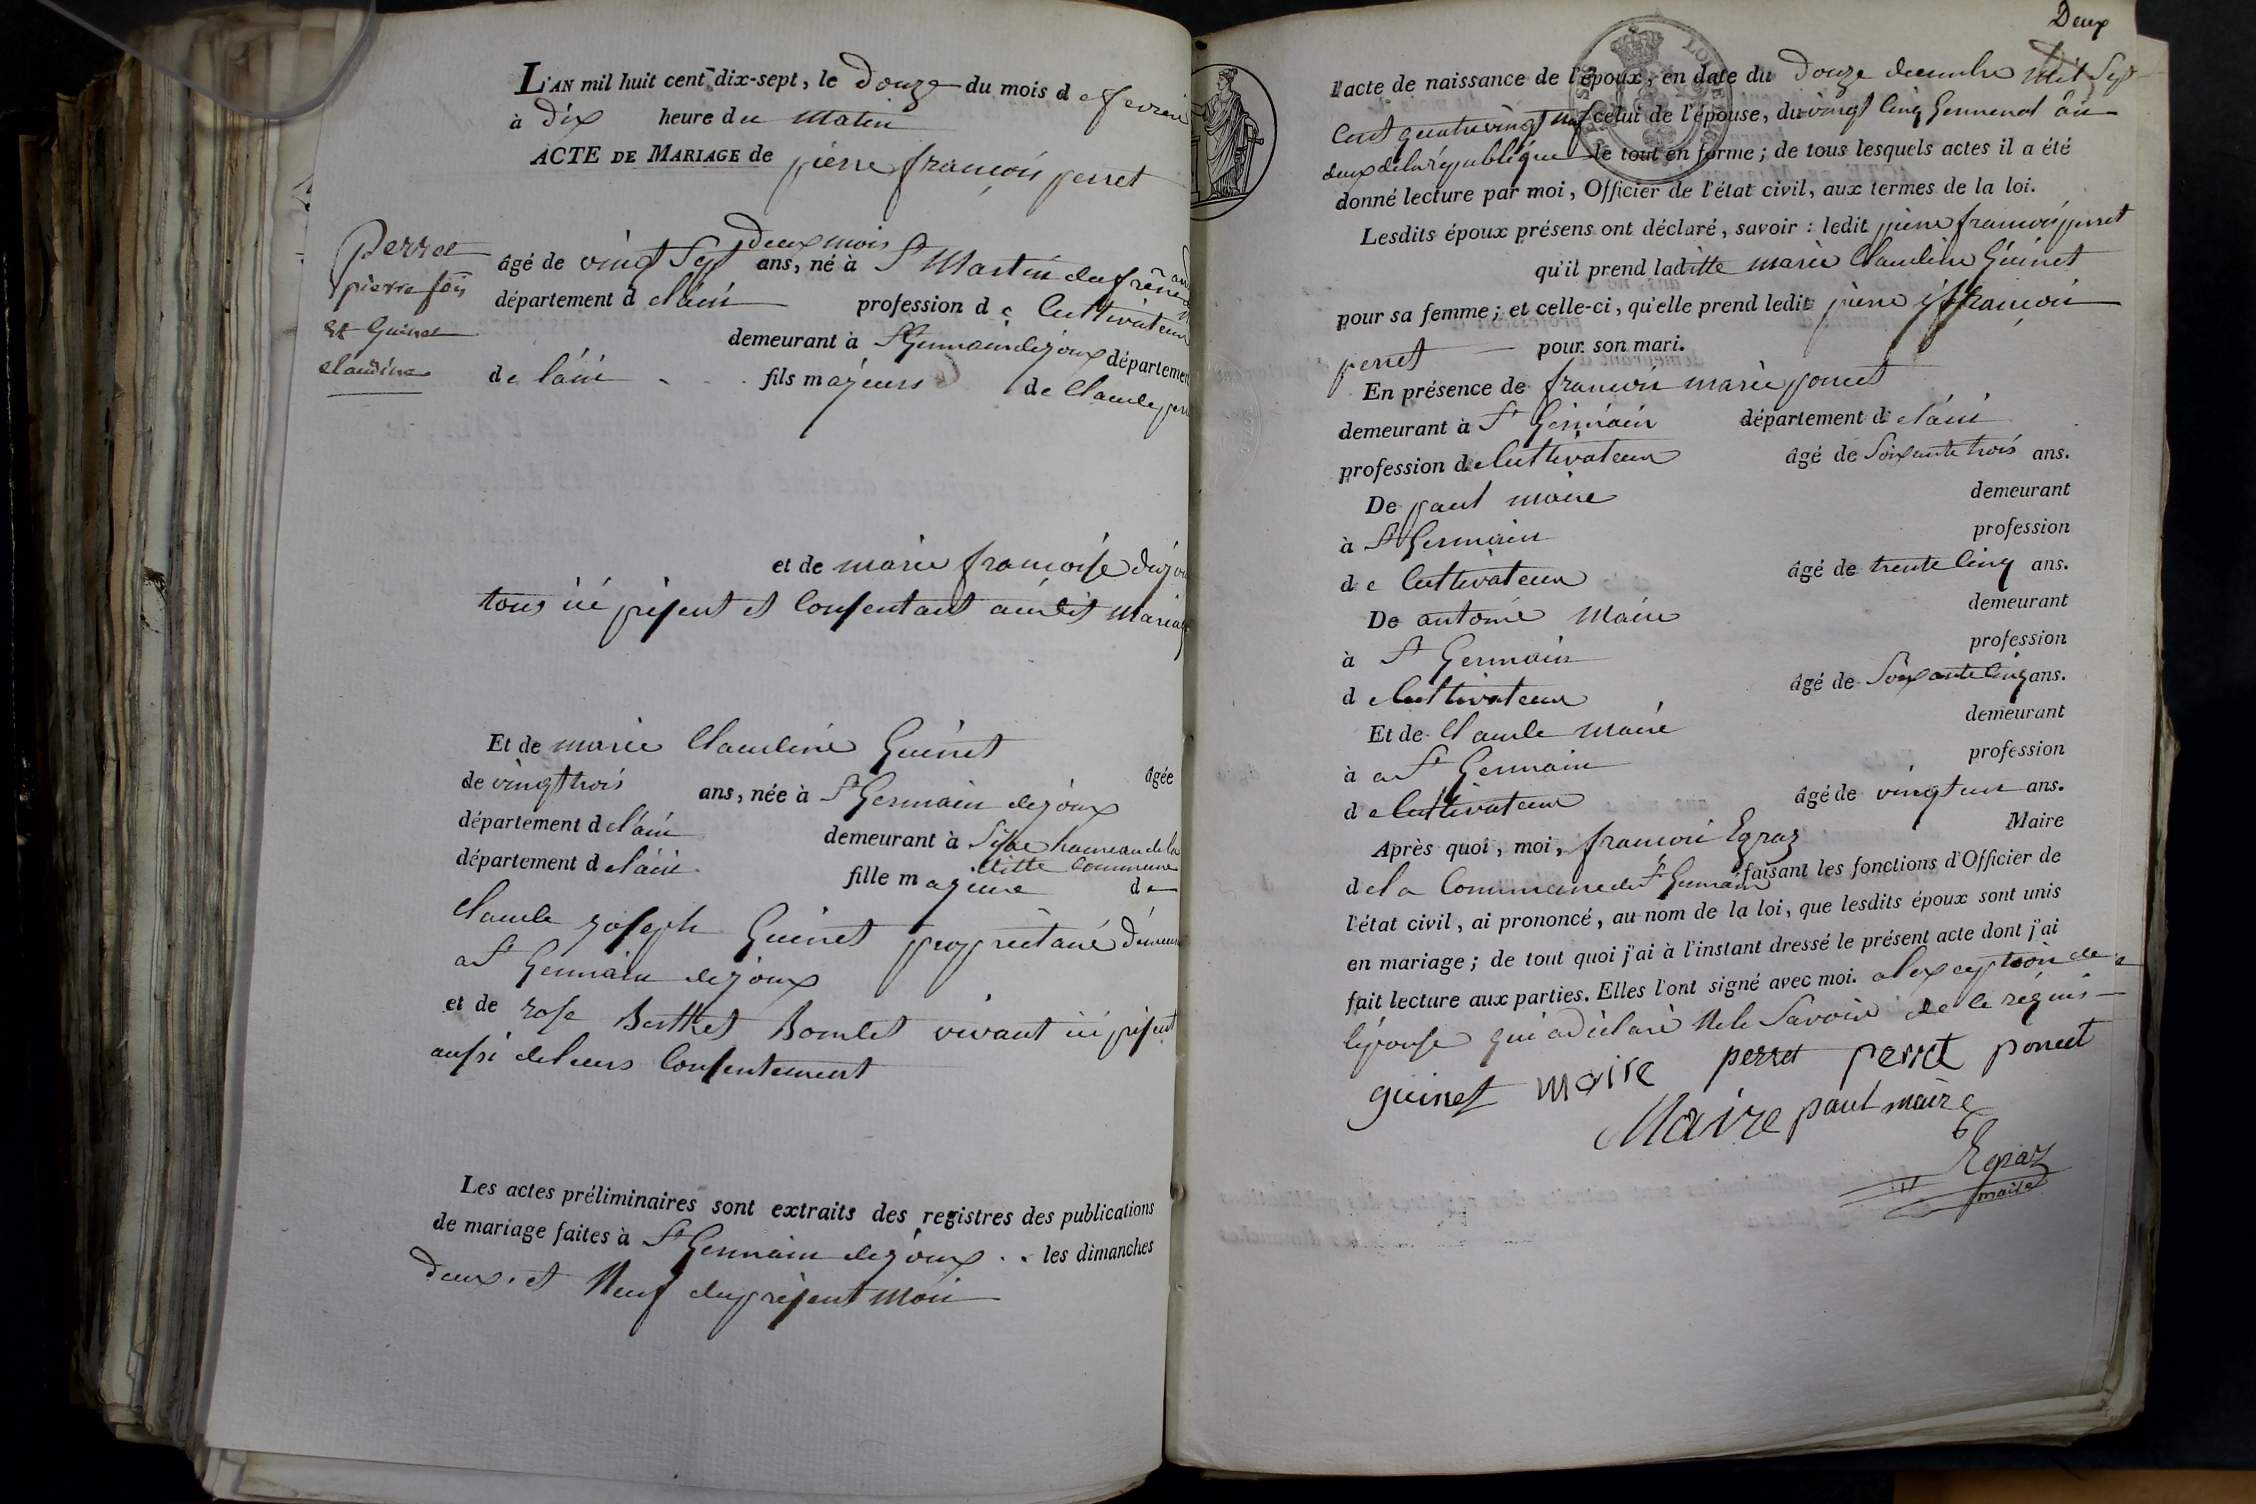 L'AN mil huit cent dix-sept, le Douze du mois de fevrier
à dix heure du matin
ACTE DE MARIAGE de pierre françois perret
Perret
pierre fois
et Guinet
claudine
deux mois
âgé de vingt Sept ans, né à St Martin du frêne
département de l'ain profession de Cultivateur
demeurant à St Germain de joux département
de l'ain fils majeurs de Claude
et de marie françoise
tous ici présent et Consentant audit
Et de marie Claudine Guinet âgée
de vingt trois ans, née à St Germain de joux
département de l'ain demeurant à hameau de la
ditte Commune
département de l'ain fille majeure de
Claude Joseph Guinet proprietaire
a St Germain de joux
et de rose Berthet Bomlet vivant ici présent
aussi de leurs Consentement
Les actes préliminaires sont extraits des registres des publications
de mariage faites à St Germain de joux les dimanches
deux et Neuf du présent Moi
Deux
l'acte de naissance de l'époux, en date du Douze decembre Mil Sept
Cent quatre vingt neuf celui de l'épouse, du vingt Cinq Germinal an
deux de la république le tout en forme; de tous lesquels actes il a été
donné lecture par moi, Officier de l'état civil, aux termes de la loi.
Lesdits époux présens ont déclaré, savoir : ledit pierre françois perret
qu'il prend laditte marie Claudine Guinet
pour sa femme; et celle-ci, qu'elle prend ledit pierre françois
perret pour son mari.
En présence de françois marie poncet
demeurant à St Germain département de l'ain
profession de Cultivateur âgé de Soixante trois ans.
De paul maire demeurant
à St Germain profession
de Cultivateur âgé de trente Cinq ans.
De antoine Maire demeurant
à St Germain profession
de Cultivateur âgé de Soixante Cinq ans.
Et de Claude maire demeurant
à a St Germain profession
de Cultivateur âgé de vingt un ans.
Après quoi, moi, françois Egraz Maire
de la Commune de St Germain faisant les fonctions d'Officier de
l'état civil, ai prononcé, au nom de la loi, que lesdits époux sont unis
en mariage; de tout quoi j'ai à l'instant dressé le présent acte dont j'ai
fait lecture aux parties. Elles l'ont signé avec moi. a l'exception de
l'épouse qui a déclaré Ne le Savoir de ce réquis
guinet maire perret perret poncet
Maire paul maire
Egraz
maire